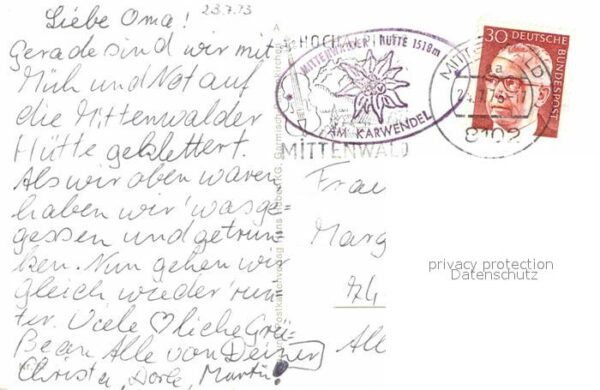 23.7.73
Liebe Oma!
Gerade sind wir mit
Müh und Not auf
die Mittenwalder
Hütte geklettert.
Als wir oben waren
haben wir 'was ge-
gessen und getrun-
ken. Nun gehen wir
gleich wieder 'run-
ter. Viele ♡liche Grü-
ße an Alle von Deiner
Christa, Dorle, Martin!
MITTENWALDER HÜTTE 1518m
AM KARWENDEL
MITTENWALD
8102
30 DEUTSCHE BUNDESPOST
Frau
Marg
All
privacy protection
Datenschutz